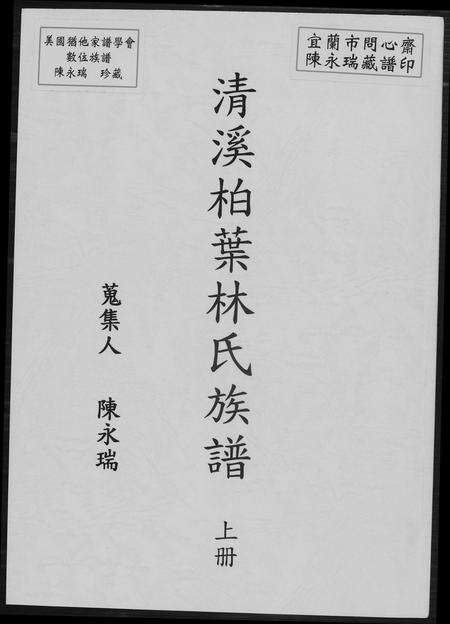 宜蘭市問心齋
陳永瑞藏譜印
清溪柏葉林氏族譜 上册
蒐集人 陳永瑞
美國猶他家譜學會
數位族譜
陳永瑞 珍藏